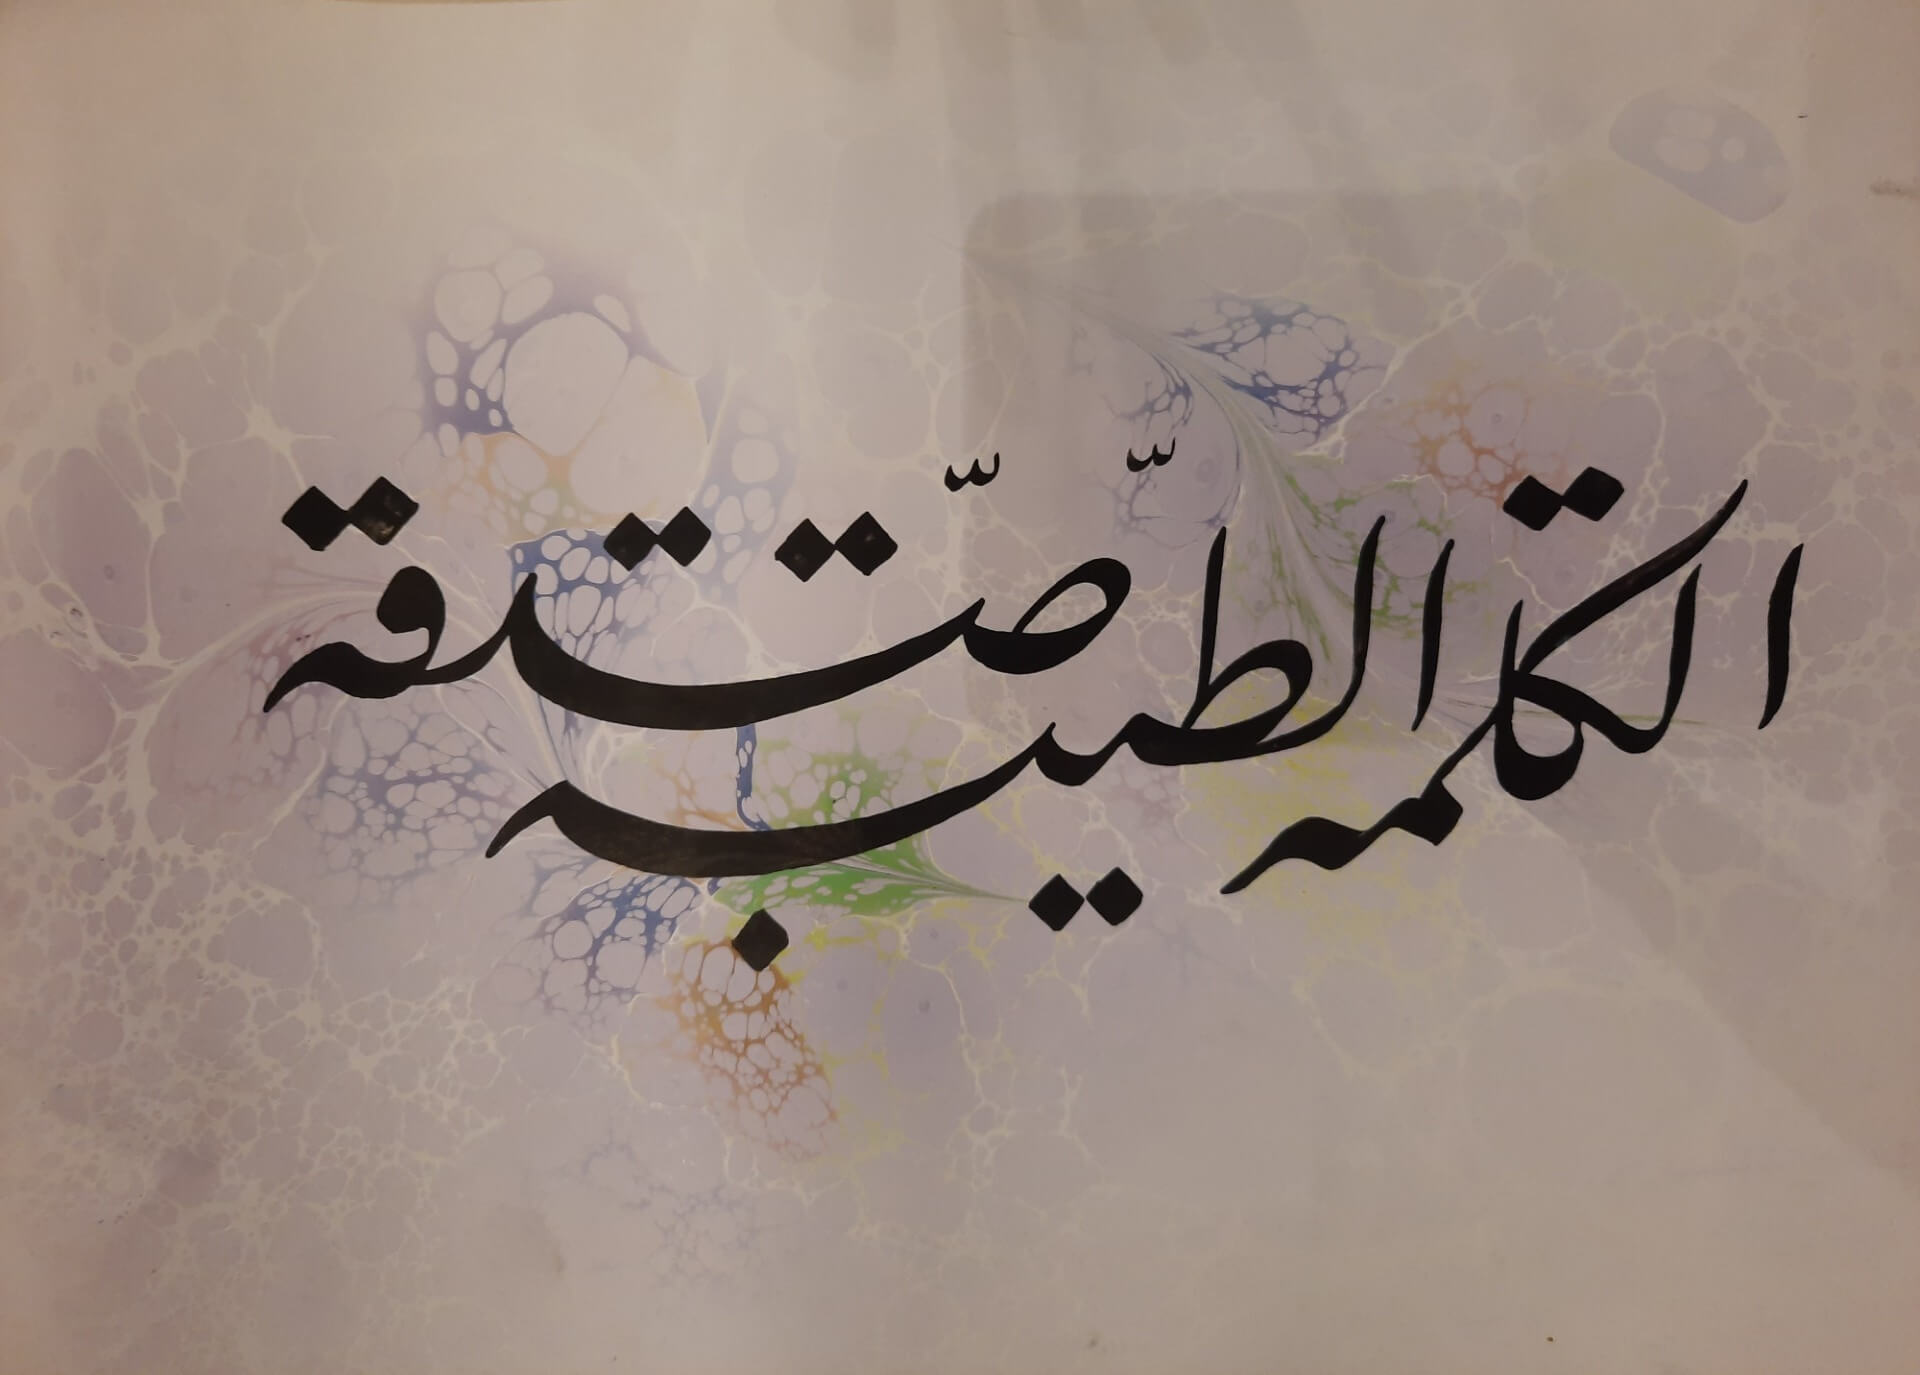 الكلمة الطّيّبة صدقة